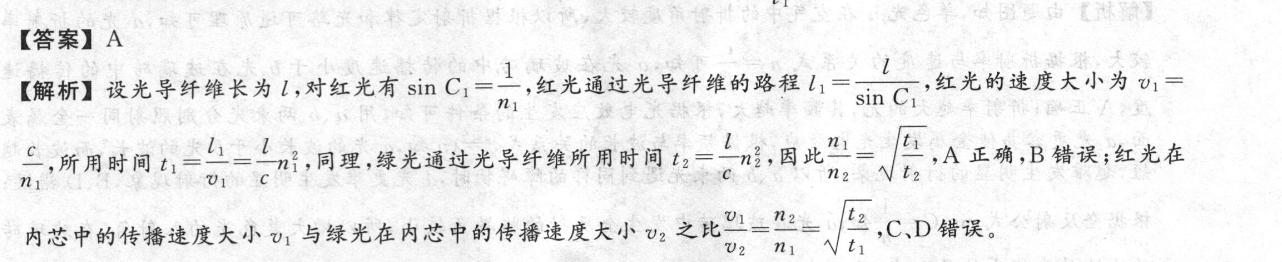 【答案】A
【解析】设光导纤维长为 l,对红光有 sin C₁=1/n₁,红光通过光导纤维的路程 l₁=l/sin C₁,红光的速度大小为 v₁=
c/n₁,所用时间 t₁=l₁/v₁=l/c n₁²,同理,绿光通过光导纤维所用时间 t₂=l/c n₂²,因此n₁/n₂=√(t₁/t₂),A 正确,B 错误;红光在
内芯中的传播速度大小 v₁ 与绿光在内芯中的传播速度大小 v₂ 之比v₁/v₂=n₂/n₁=√(t₂/t₁),C、D 错误。